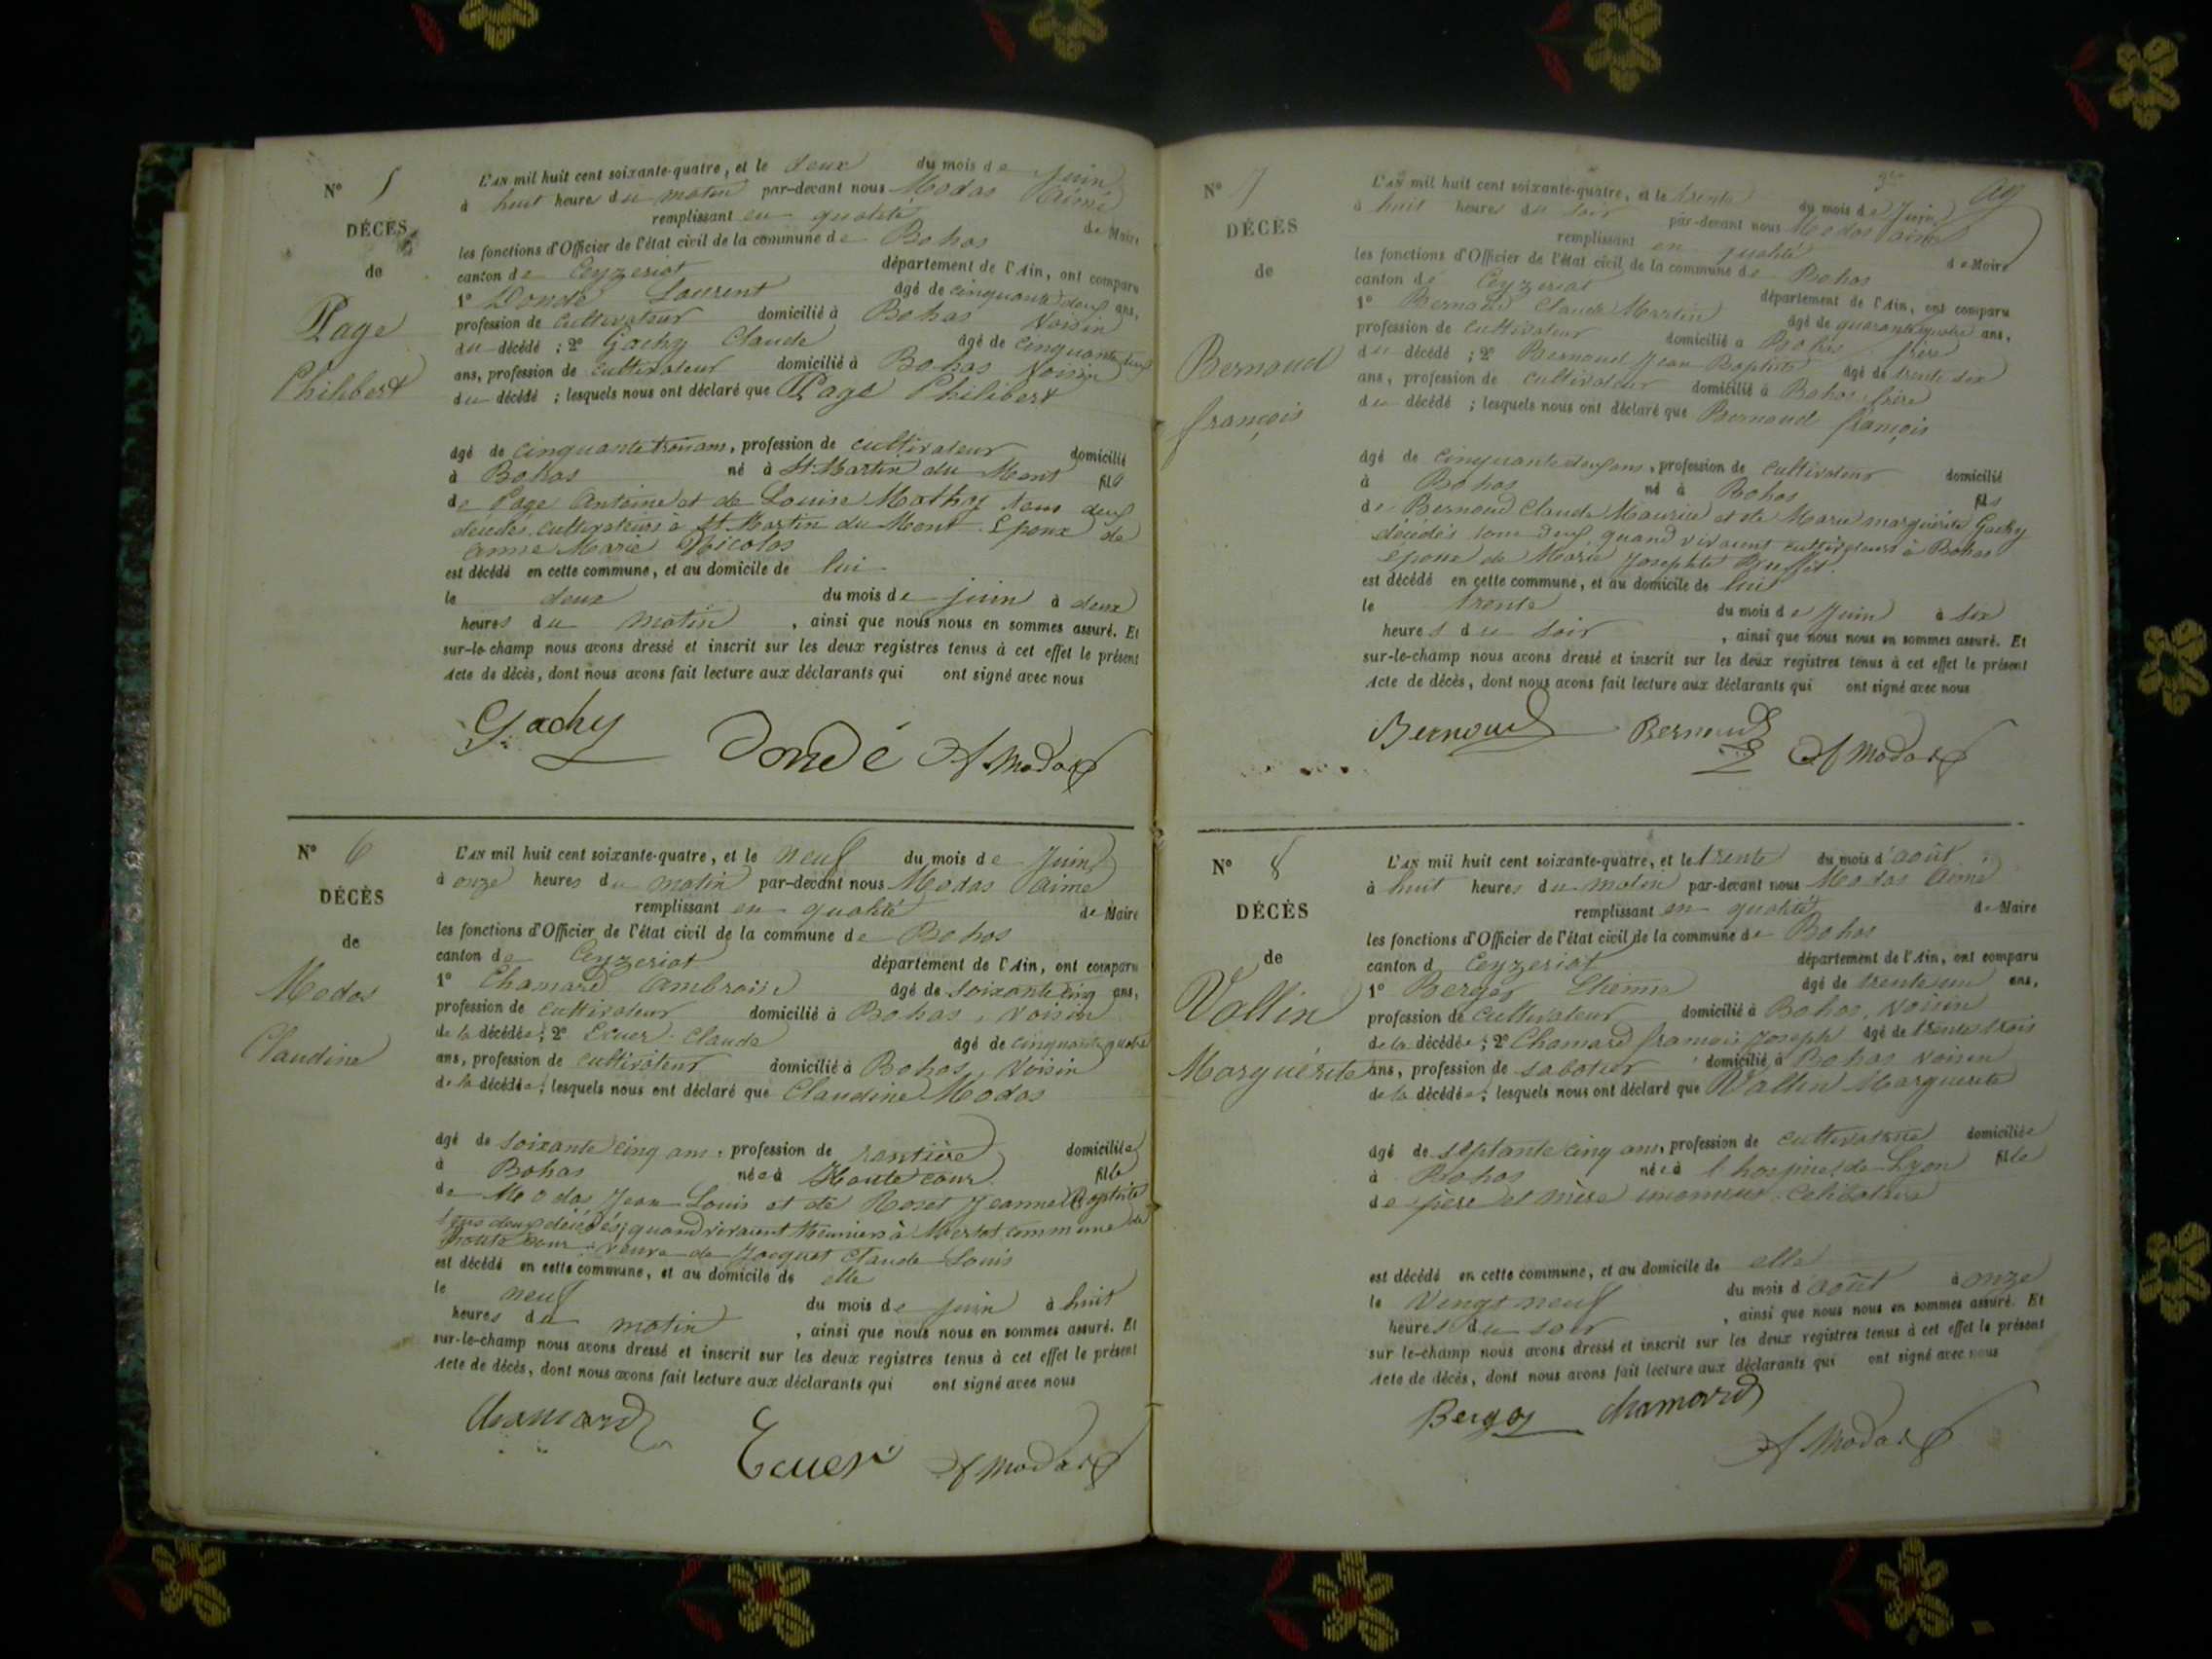 N° 5
DÉCÈS
de
Page
Philibert
L'AN mil huit cent soixante-quatre, et le deux du mois de Juin
à huit heure du matin par-devant nous Modas Aimé
remplissant en qualité de Maire
les fonctions d'Officier de l'état civil de la commune de Bohas
canton de Ceyzeriat département de l'Ain, ont comparu
1° Dondé Laurent âgé de cinquante deux ans,
profession de cultivateur domicilié à Bohas Voisin
du décédé ; 2° Gachy Claude âgé de cinquante
ans, profession de cultivateur domicilié à Bohas Voisin
du décédé ; lesquels nous ont déclaré que Page Philibert
âgé de cinquante trois ans, profession de cultivateur domicilié
à Bohas né à St Martin du Mont fils
de Page Antoine et de Louise Mathy tous deux
décédés cultivateurs à St Martin du Mont. Epoux de
Anne Marie Nicolas
est décédé en cette commune, et au domicile de lui
le deux du mois de juin à deux
heures du matin , ainsi que nous nous en sommes assuré. Et
sur-le-champ nous avons dressé et inscrit sur les deux registres tenus à cet effet le présent
Acte de décès, dont nous avons fait lecture aux déclarants qui ont signé avec nous
Gachy Dondé A Modas
N° 6
DÉCÈS
de
Modas
Claudine
L'AN mil huit cent soixante-quatre, et le neuf du mois de Juin
à onze heures du matin par-devant nous Modas Aimé
remplissant en qualité de Maire
les fonctions d'Officier de l'état civil de la commune de Bohas
canton de Ceyzeriat département de l'Ain, ont comparu
1° Chamard Ambroise âgé de soixante cinq ans,
profession de cultivateur domicilié à Bohas, voisin
de la décédée ; 2° Ecuer Claude âgé de cinquante quatre
ans, profession de cultivateur domicilié à Bohas, Voisin
de la décédée ; lesquels nous ont déclaré que Claudine Modas
âgé de soixante cinq ans, profession de rentière domiciliée
à Bohas née à Haute cour fille
de Modas Jean Louis et de Rozet Jeanne Baptiste
tous deux décédés, quand vivaient Meuniers à commune de
Haute cour. veuve de Jacquet Claude Louis
est décédé en cette commune, et au domicile de elle
le neuf du mois de juin à huit
heures du matin , ainsi que nous nous en sommes assuré. Et
sur-le-champ nous avons dressé et inscrit sur les deux registres tenus à cet effet le présent
Acte de décès, dont nous avons fait lecture aux déclarants qui ont signé avec nous
Chamard Ecuer A Modas
N° 7
DÉCÈS
de
Bernoud
françois
L'AN mil huit cent soixante-quatre, et le trente du mois de Juin
à huit heures du soir par-devant nous Modas Aimé
remplissant en qualité de Maire
les fonctions d'Officier de l'état civil de la commune de Bohas
canton de Ceyzeriat département de l'Ain, ont comparu
1° Bernoud Claude Martin âgé de quarante quatre ans,
profession de cultivateur domicilié à Bohas frère
du décédé ; 2° Bernoud Jean Baptiste âgé de trente six
ans, profession de cultivateur domicilié à Bohas frère
du décédé ; lesquels nous ont déclaré que Bernoud françois
âgé de cinquante deux ans, profession de cultivateur domicilié
à Bohas né à Bohas fils
de Bernoud Claude Maurice et de Marie marguerite Gachy
décédés tous deux quand vivaient cultivateurs à Bohas
epoux de Marie Josephte
est décédé en cette commune, et au domicile de lui
le trente du mois de Juin à six
heures du soir , ainsi que nous nous en sommes assuré. Et
sur-le-champ nous avons dressé et inscrit sur les deux registres tenus à cet effet le présent
Acte de décès, dont nous avons fait lecture aux déclarants qui ont signé avec nous
Bernoud Bernoud A Modas
N° 8
DÉCÈS
de
Vallin
Marguérite
L'AN mil huit cent soixante-quatre, et le trente du mois d'août
à huit heures du matin par-devant nous Modas Aimé
remplissant en qualité de Maire
les fonctions d'Officier de l'état civil de la commune de Bohas
canton d Ceyzeriat département de l'Ain, ont comparu
1° Berger Etienne âgé de trente un ans,
profession de cultivateur domicilié à Bohas, Voisin
de la décédée ; 2° Chamard françois Joseph âgé de trente trois
ans, profession de sabotier domicilié à Bohas voisin
de la décédée ; lesquels nous ont déclaré que Vallin Marguerite
âgé de septante cinq ans, profession de cultivatrice domiciliée
à Bohas née à l'hospice de Lyon fille
de père et mère inconnus. Celibataire
est décédé en cette commune, et au domicile de elle
le Vingt neuf du mois d'août à onze
heures du soir , ainsi que nous nous en sommes assuré. Et
sur le-champ nous avons dressé et inscrit sur les deux registres tenus à cet effet le présent
Acte de décès, dont nous avons fait lecture aux déclarants qui ont signé avec nous
Berger Chamard
A Modas